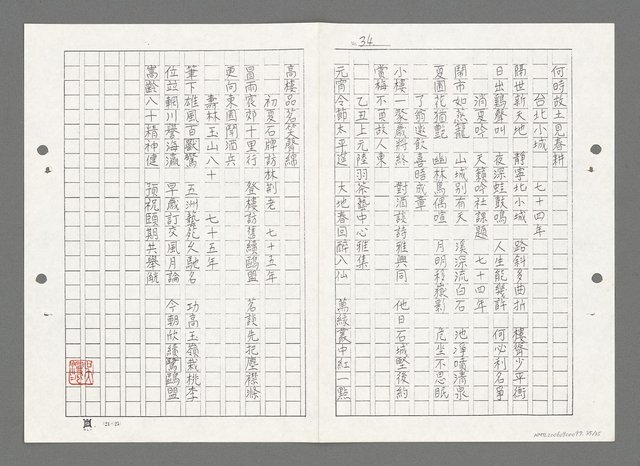 34
何時故土見春耕
台北小城 七十四年
隔世新天地 靜寧北小城 路斜多曲折 樓聳少平衡
日出鷄聲叫 夜深蛙鼓鳴 人生能幾許 何必利名爭
消夏吟 天籟吟社課題 七十四年
鬧市如蒸籠 山城別有天 溪深流白石 池淨噴清泉
夏園花猶艷 幽林鳥偶喧 月明移嶽影 危坐不思眠
了翁邀飲喜時成章
小樓一聚歲將終 對酒談詩雅興同 他日石城堅後約
賞梅不再故人東
乙丑上元陸羽茶藝中心雅集
元宵令節太平延 大地春回醉入仙 萬綠叢中紅一點
高樓品茗笑聲綿
初夏石牌訪林荆老 七十五年
冒雨衰郊十里行 登樓訪舊續鷗盟 茗談先把塵襟滌
更向東園開酒兵
壽林玉山八十 七十五年
筆下雄風百獸驚 五洲藝苑久馳名 功高玉嶺栽桃李
位並輞川譽海瀛 早歲訂交風月論 今朝欣續鷺鷗盟
嵩齡八十精神健 預祝頤期共舉觥